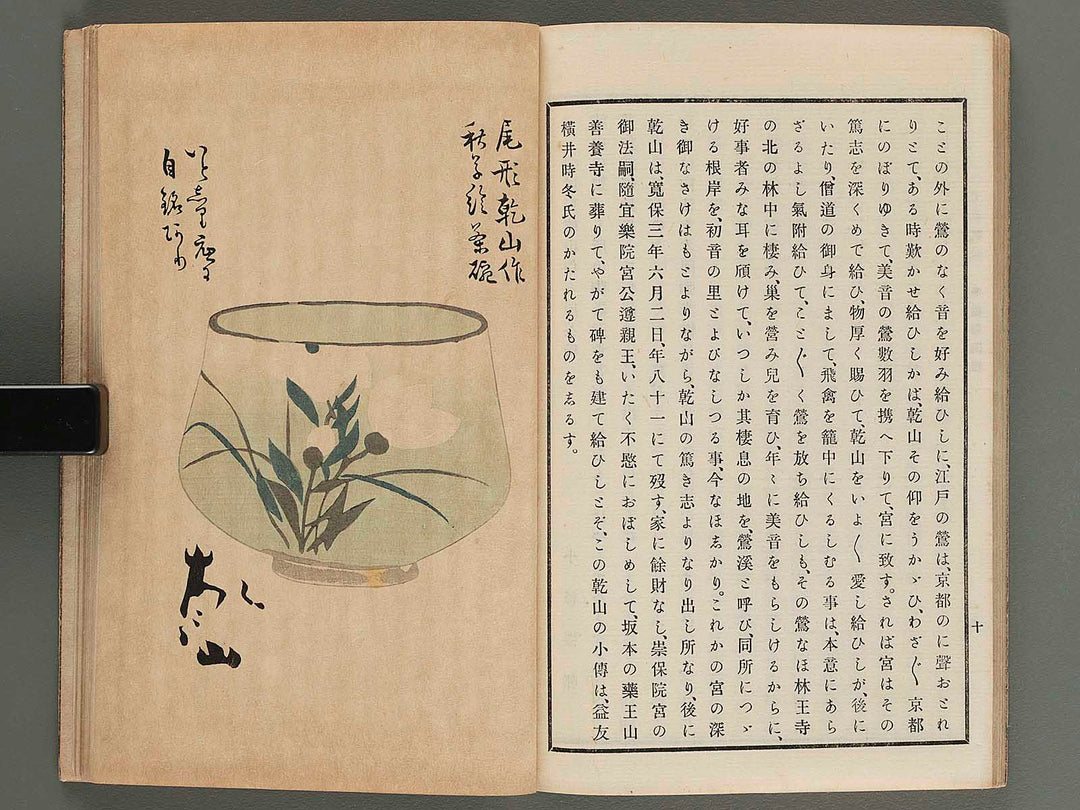 ことの外に鶯のなく音を好み給ひしに、江戸の鶯は、京都のに聲おとれ
りとて、ある時歎かせ給ひしかば、乾山その仰をうかゞひ、わざ〲京都
にのぼりゆきて、美音の鶯數羽を携へ下りて、宮に致す。されば宮はその
篤志を深くめで給ひ、物厚く賜ひて、乾山をいよ〱愛し給ひしが、後に
いたり、僧道の御身にまして、飛禽を籠中にくるしむる事は、本意にあら
ざるよし氣附給ひて、こと〲く鶯を放ち給ひしも、その鶯なほ林王寺
の北の林中に棲み、巢を營み兒を育ひ、年〻に美音をもらしけるからに、
好事者みな耳を頃けて、いつしか其棲息の地を、鶯溪と呼び、同所につゞ
ける根岸を、初音の里とよびなしつる事、今なほ志かり。これかの宮の深
き御なさけはもとよりながら、乾山の篤き志よりなり出し所なり、後に
乾山は、寬保三年六月二日、年八十一にて歿す、家に餘財なし、崇保院宮の
御法嗣、隨宜樂院宮公遵親王、いたく不愍におぼしめして、坂本の藥王山
善養寺に葬りて、やがて碑をも建て給ひしとぞ、この乾山の小傳は、益友
橫井時冬氏のかたれるものを志るす。
十
尾形乾山作
秋草繪茶碗
自銘
乾山